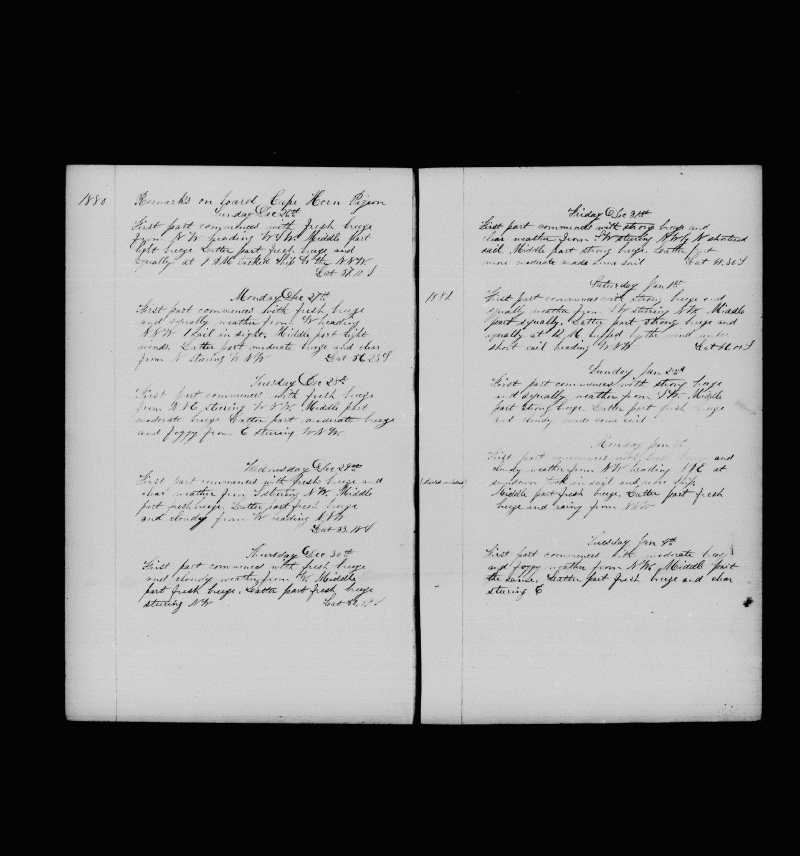 1880
Remarks on board Cape Horn Pigeon
Sunday Dec 26th
First part commences with fresh breeze
from N W heading W S W. Middle part
light breeze Latter part fresh breeze and
squally at 1 AM tacked Ship to the N N W
Lat 57.10 S
Monday Dec 27th
First part commences with fresh breeze
and squally weather from W heading
N N W 1 Sail in sight. Middle part light
winds. Latter part moderate breeze and clear
from N steering W N W Lat 56.25 S
Tuesday Dec 28th
First part commences with fresh breeze
from N E steering W N W. Middle part
moderate breeze Latter part moderate breeze
and foggy from E steering W N W
Wednesday Dec 29th
First part commences with fresh breeze and
clear weather from S steering N W. Middle
part fresh breeze. Latter part fresh breeze
and cloudy from W heading N N W
Lat 53.18 S
Thursday Dec 30th
First part commences with fresh breeze
and cloudy weather from W. Middle
part fresh breeze. Latter part fresh breeze
steering N W Lat S
Friday Dec 31st
First part commences with strong breeze and
clear weather from S W steering N W by N shortend
sail. Middle part strong breeze. Latter part
more moderate made some sail Lat 48.30 S
1881
Saturday Jan 1st
First part commences with strong breeze and
squally weather from S W steering N W. Middle
part squally. Latter part strong breeze and
squally at 12 M luffed by the wind under
short sail heading W N W Lat 46.10 S
Sunday Jan 2nd
First part commences with strong breeze
and squally weather from S W. Middle
part strong breeze. Latter part fresh breeze
and cloudy made some sail
Monday Jan
First part commences with fresh breeze and
cloudy weather from N W heading N E at
sundown took in sail and wore ship
Middle part fresh breeze, Latter part fresh
breeze and rainy from N N W
Tuesday Jan 4th
First part commences with moderate breeze
and foggy weather from N W. Middle part
the same. Latter part fresh breeze and clear
steering E